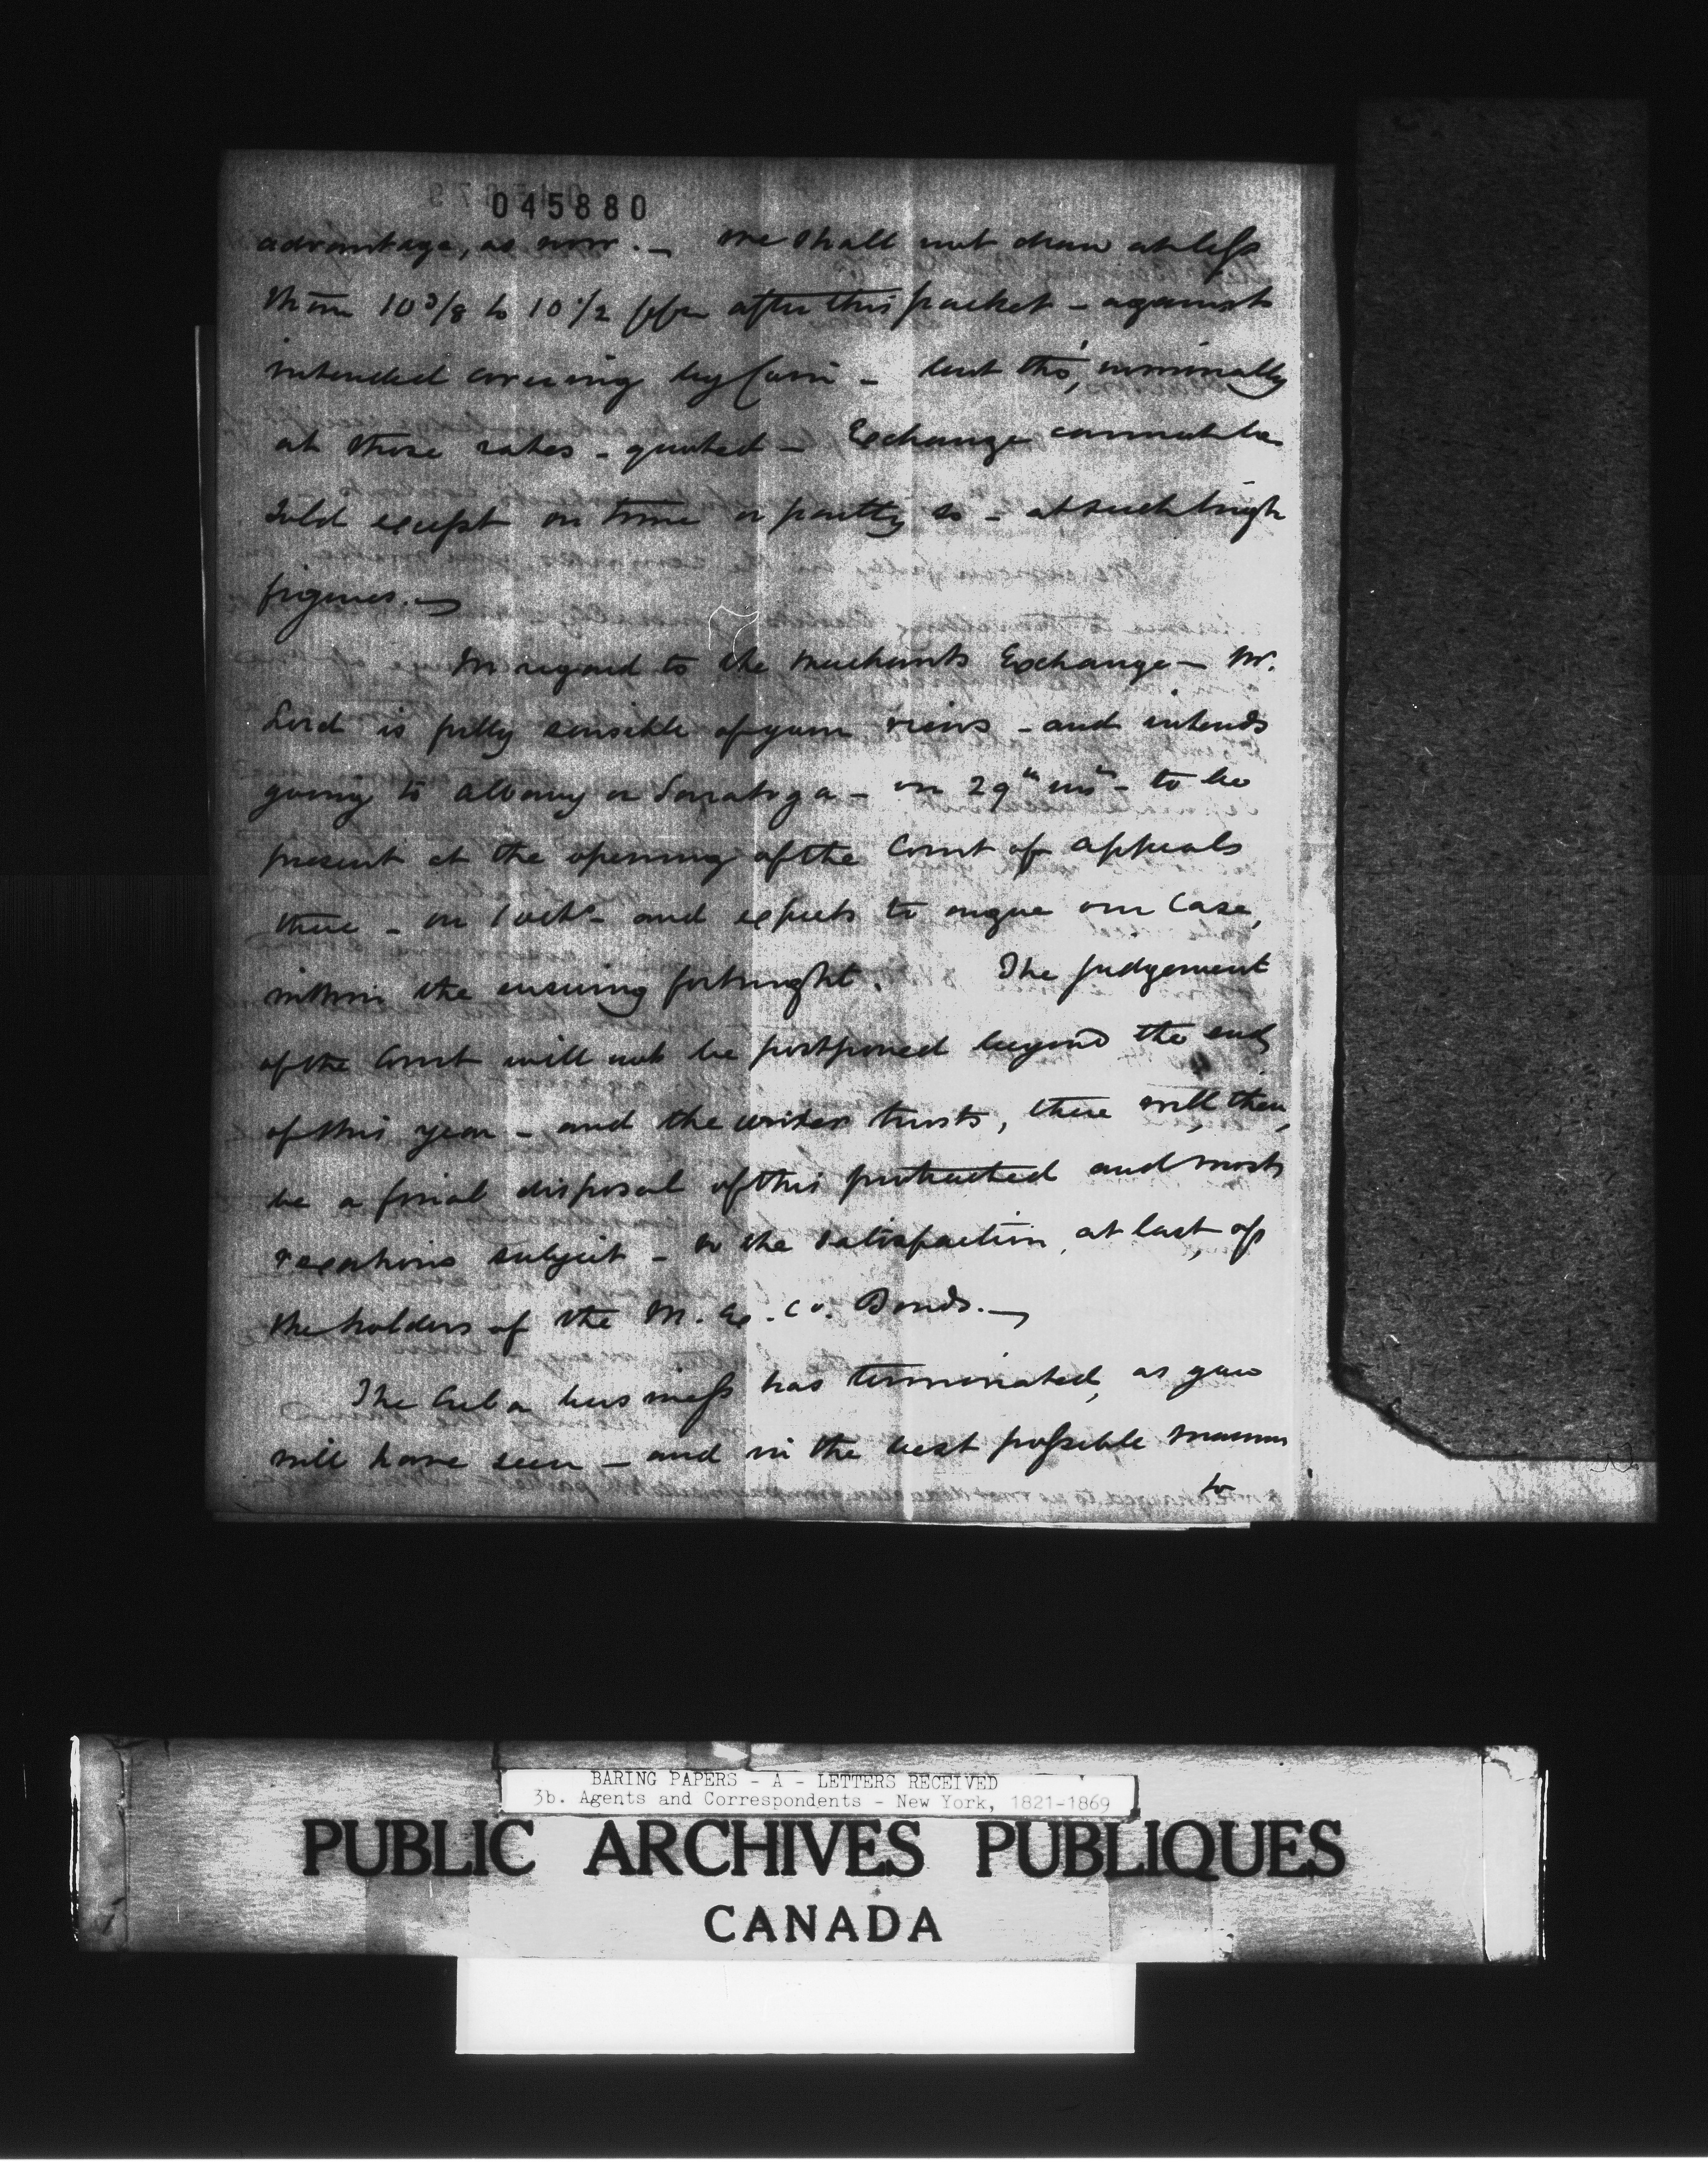 045880
advantage, as now. — We shall not draw at less
than 10 3/8 to 10 1/2 after this packet - against
intended covering by Coin - but tho', nominally
at those rates - quoted - Exchange cannot be
sold except on time or partly so - at such high
figures. —
In regard to the Merchants Exchange - Mr.
Lord is fully sensible of your views - and intends
going to Albany or Saratoga - on 29th - to be
present at the opening of the Court of Appeals
there - on 1 Octr - and expects to argue our Case,
within the ensuing fortnight. The judgement
of the Court will not be postponed beyond the end
of this year - and the writer trusts, there will, then,
be a final disposal of this protracted and most
vexatious subject - to the satisfaction, at last, of
the holders of the M. Ex. Co. Bonds. —
The Cuba business has terminated, as you
will have seen - and in the best possible manner
to
BARING PAPERS - A - LETTERS RECEIVED
3b. Agents and Correspondents - New York, 1821-1869
PUBLIC ARCHIVES PUBLIQUES
CANADA